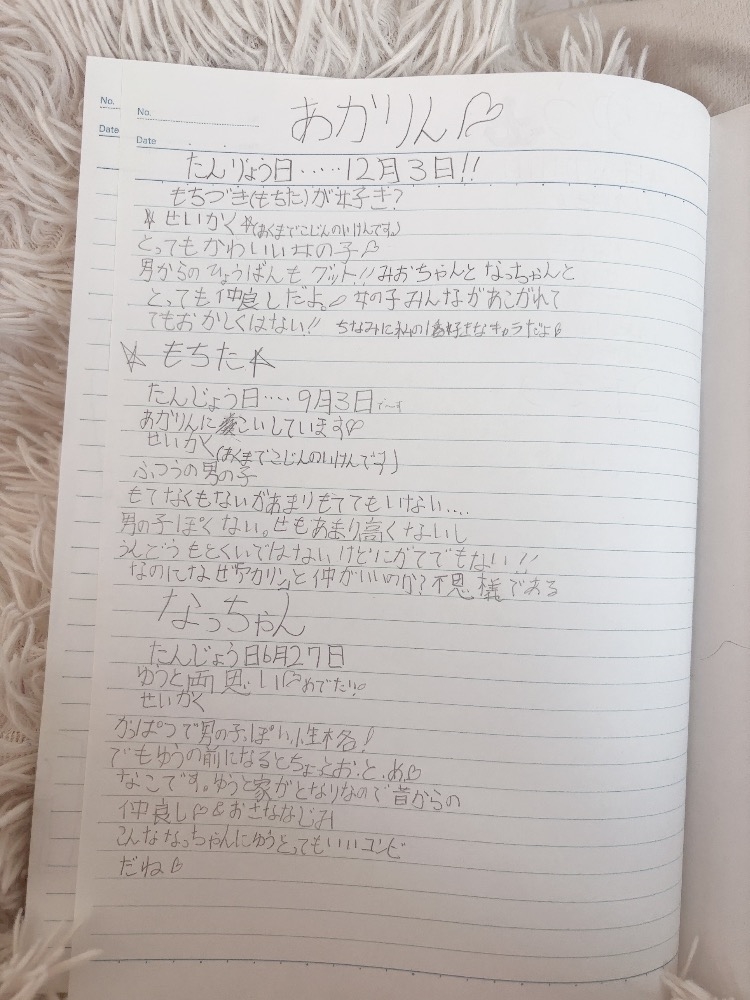 No.
Date
No.
Date
あかりん♡
たんじょう日……12月3日!!
もちづき(もちた)が好き?
☆せいかく☆(あくまでこじんのいけんです。)
とってもかわいい女の子♡
男からのひょうばんもグット!!みおちゃんとなっちゃんと
とっても仲良しだよ。♡女の子みんながあこがれて
てもおかしくはない!!ちなみに私の1番好きなキャラだよ♡
☆もちた☆
たんじょう日‥‥9月3日で〜す
あかりんにこいしています♡
せいかく(あくまでこじんのいけんです)
ふつうの男の子
もてなくもないがあまりもててもいない....
男の子ぽくない。せもあまり高くないし
うんどうもとくいではないけどにがてでもない!!
なのになぜ"アカリン"と仲がいいのか?不思様である
なっちゃん
たんじょう日6月27日
ゆうと両思い♡めでたい!
せいかく
かっぱつで男の子っぽい性格!
でもゆうの前になるとちょっとおとめ♡
なこです。ゆうと家がとなりなので昔からの
仲良し♡&おさななじみ
こんななっちゃんにゆうとってもいいコンビ
だね♡